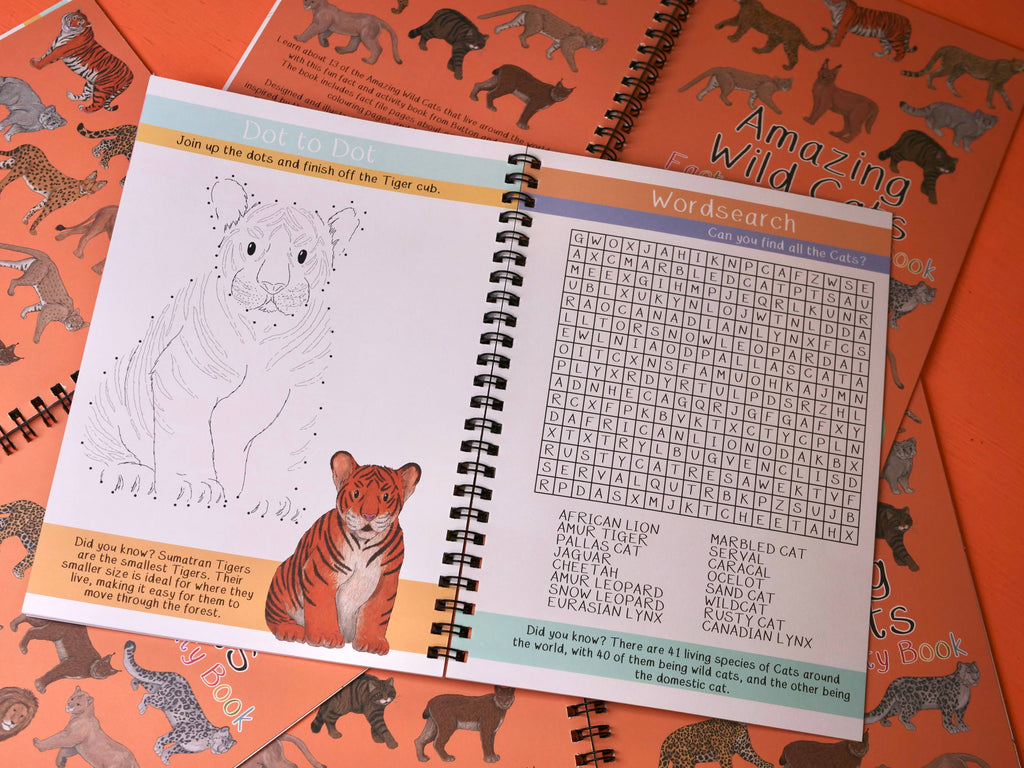 Learn about 13 of the Amazing Wild Cats that live around the
with this fun fact and activity book from Button
The book includes fact file pages about
colouring pages
Designed and
inspired by
Amazing
Wild Cats
Book
Dot to Dot
Join up the dots and finish off the Tiger cub.
Did you know? Sumatran Tigers
are the smallest Tigers. Their
smaller size is ideal for where they
live, making it easy for them to
move through the forest.
Wordsearch
Can you find all the Cats?
G W O X J A H I K N P C A F Z W S E
A X C M A R B L E D C A T F T S A U
M E E X G I H M J J E Q R I K U N R
U B L X U K Y N L O J W T N L D D A
R A O C A N A D I A N L Y N X F C S
L L T O R S N O W L E O P A R D A I
E W I N I A O D P A L L A S C A T A
O I T C X N S F A M U O H K A J M N
P L Y X R D Y R T U L P D S R Z H L
A D N H E C A G Q R J G F G A F X Y
R C X F P K B V K T X C T Y C P L N
D A F R I C A N L I O N O D A K B X
X T X T R Y L B U G V E N C L I S D
R U S T Y C A T R E S A W E K T V F
S E R V A L Q U T R B K P Z S U J B
R P D A S X M J K T C H E E T A H X
AFRICAN LION
AMUR TIGER
PALLAS CAT
JAGUAR
CHEETAH
AMUR LEOPARD
SNOW LEOPARD
EURASIAN LYNX
MARBLED CAT
SERVAL
CARACAL
OCELOT
SAND CAT
WILDCAT
RUSTY CAT
CANADIAN LYNX
Did you know? There are 41 living species of Cats around
the world, with 40 of them being wild cats, and the other being
the domestic cat.
Book
Book